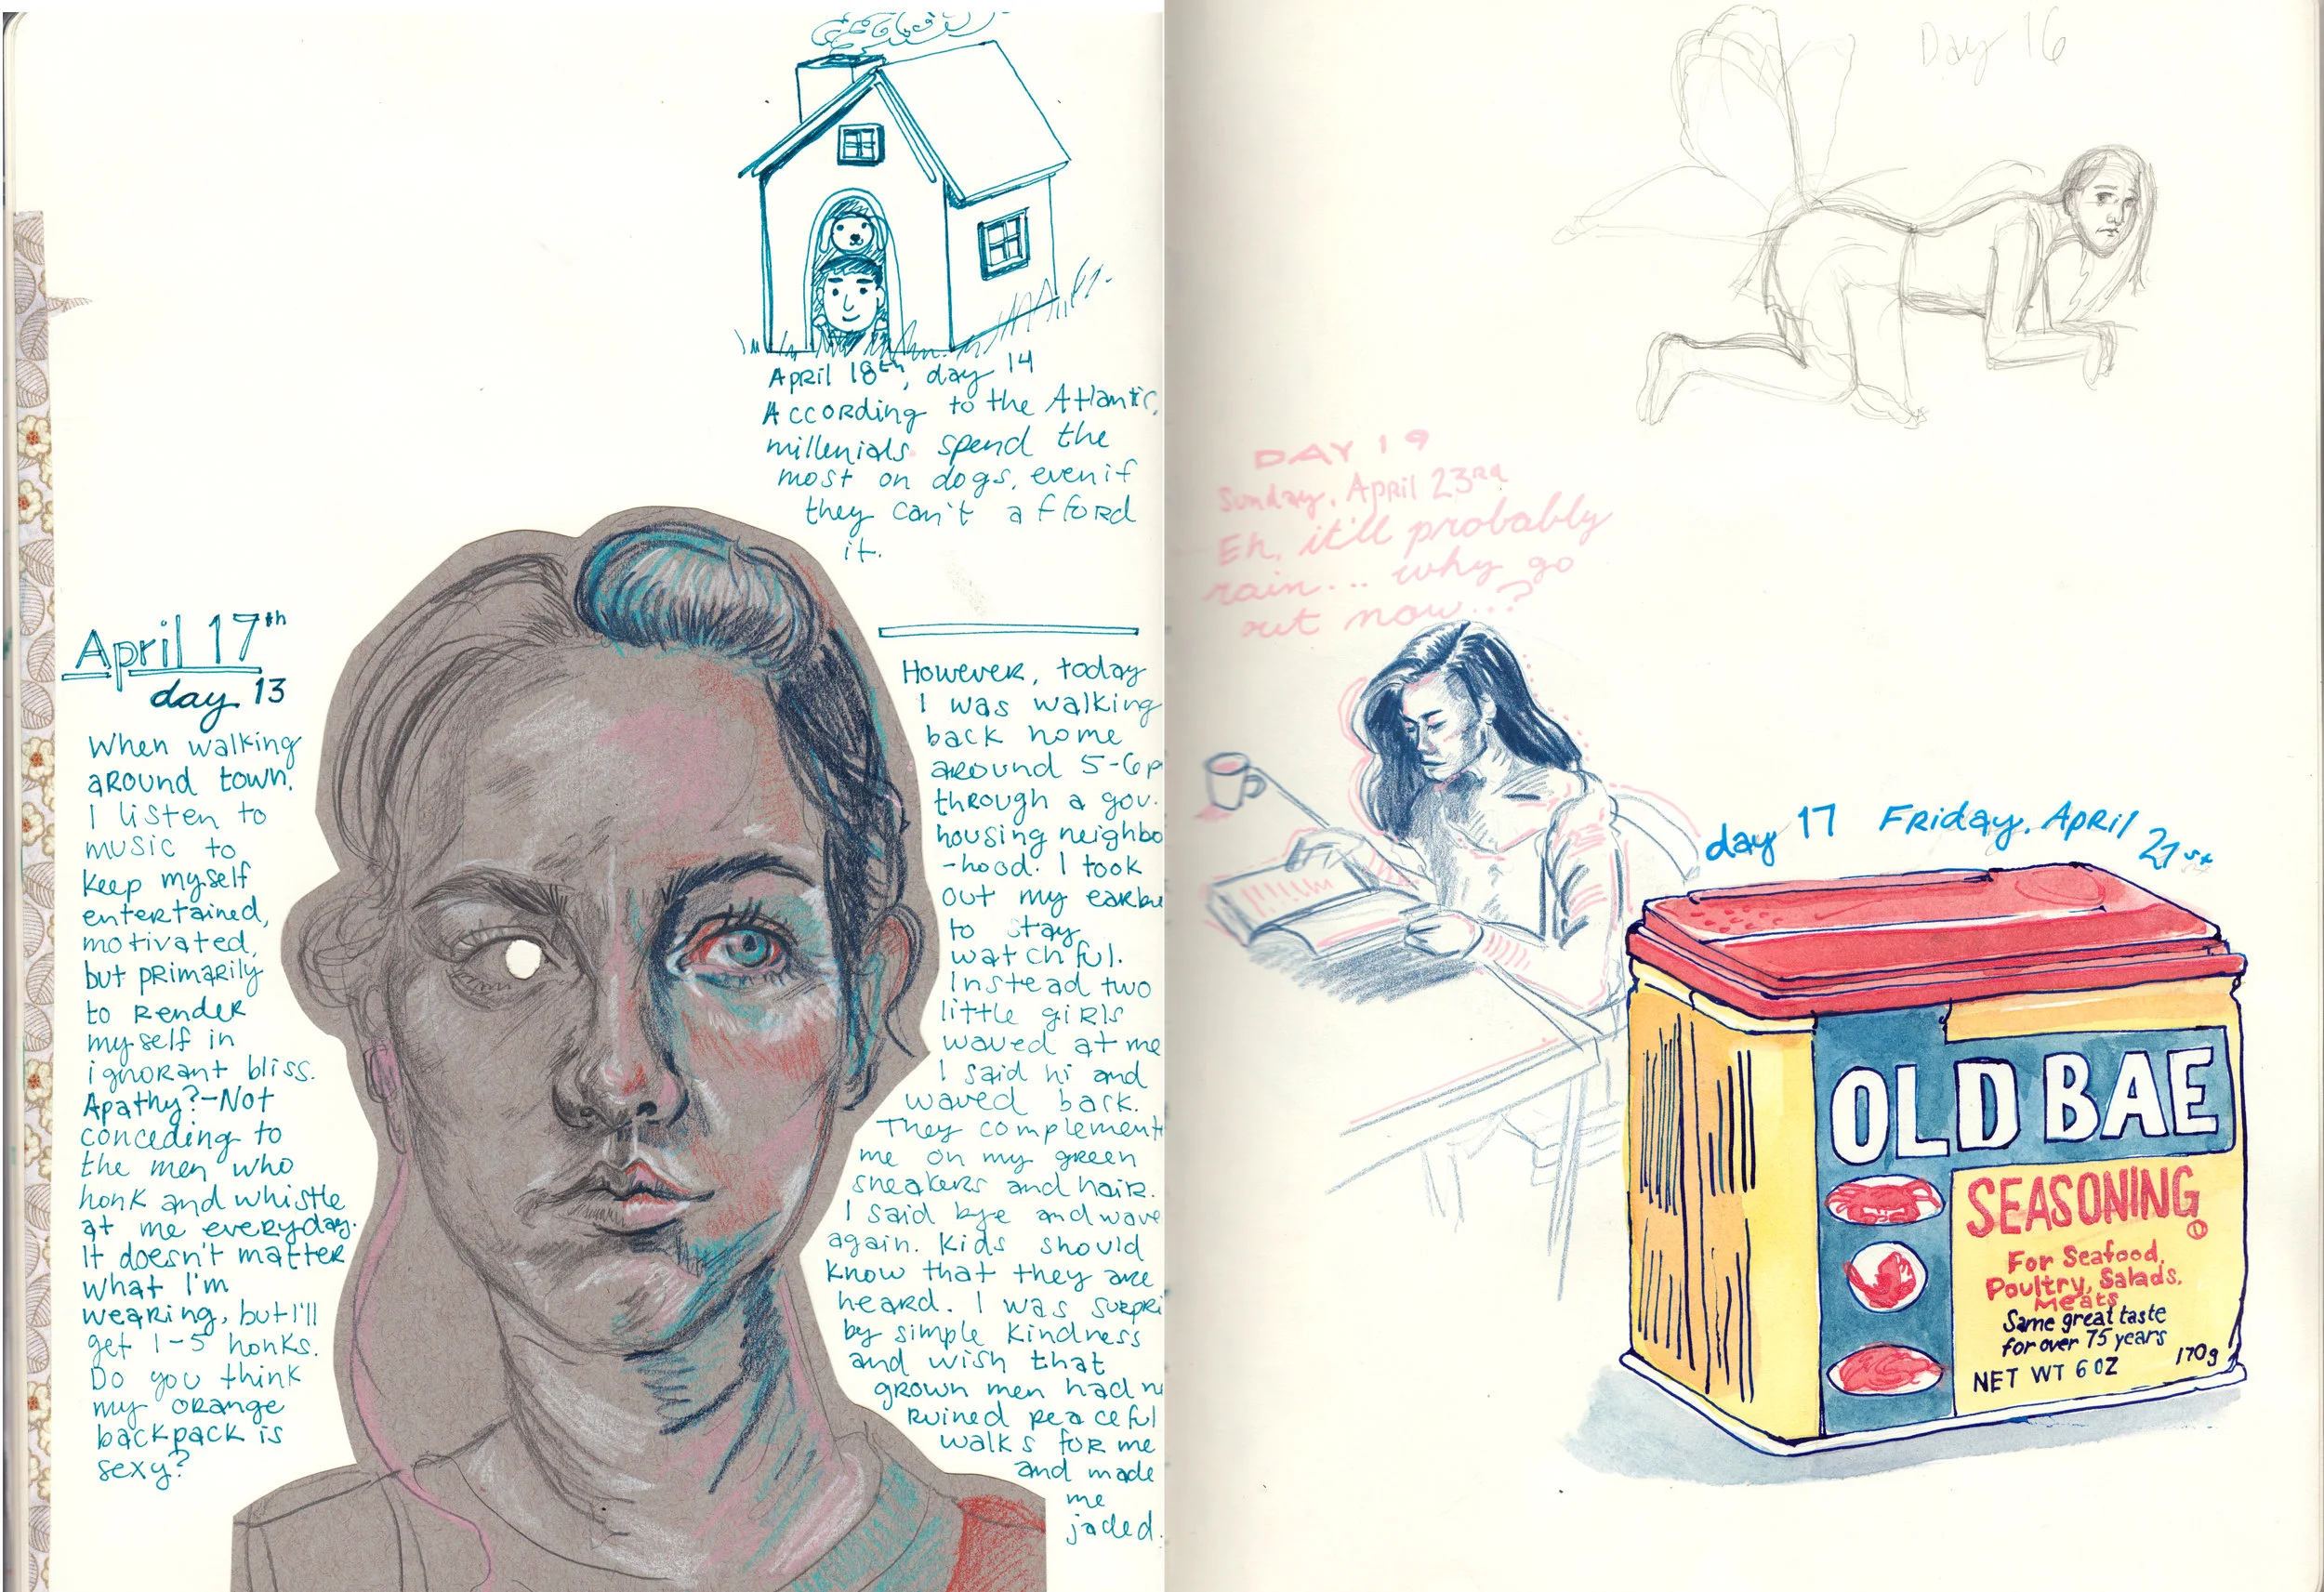 April 18th, day 14
According to the Atlantic,
millenials spend the
most on dogs, even if
they can't afford
it.
April 17th
day 13
When walking
around town,
I listen to
music to
keep myself
entertained,
motivated,
but primarily
to render
myself in
ignorant bliss.
Apathy?-Not
conceding to
the men who
honk and whistle
at me everyday.
It doesn't matter
what I'm
wearing, but I'll
get 1-5 honks.
Do you think
my orange
backpack is
sexy?
However, today
I was walking
back home
around 5-6p
through a gov.
housing neighbo
-hood. I took
out my earbu
to stay
watchful.
Instead two
little girls
waved at me
I said hi and
waved back.
They complement
me on my green
sneakers and hair.
I said bye and wave
again. Kids should
know that they are
heard. I was surpri
by simple kindness
and wish that
grown men had n
ruined peaceful
walks for me
and made
me
jaded.
Day 16
DAY 19
Sunday, April 23rd
Eh, it'll probably
rain... why go
out now...?
day 17 Friday, April 21st
OLD BAE
SEASONING
For Seafood,
Poultry, Salads,
Meats
Same great taste
for over 75 years
NET WT 6 OZ 170g